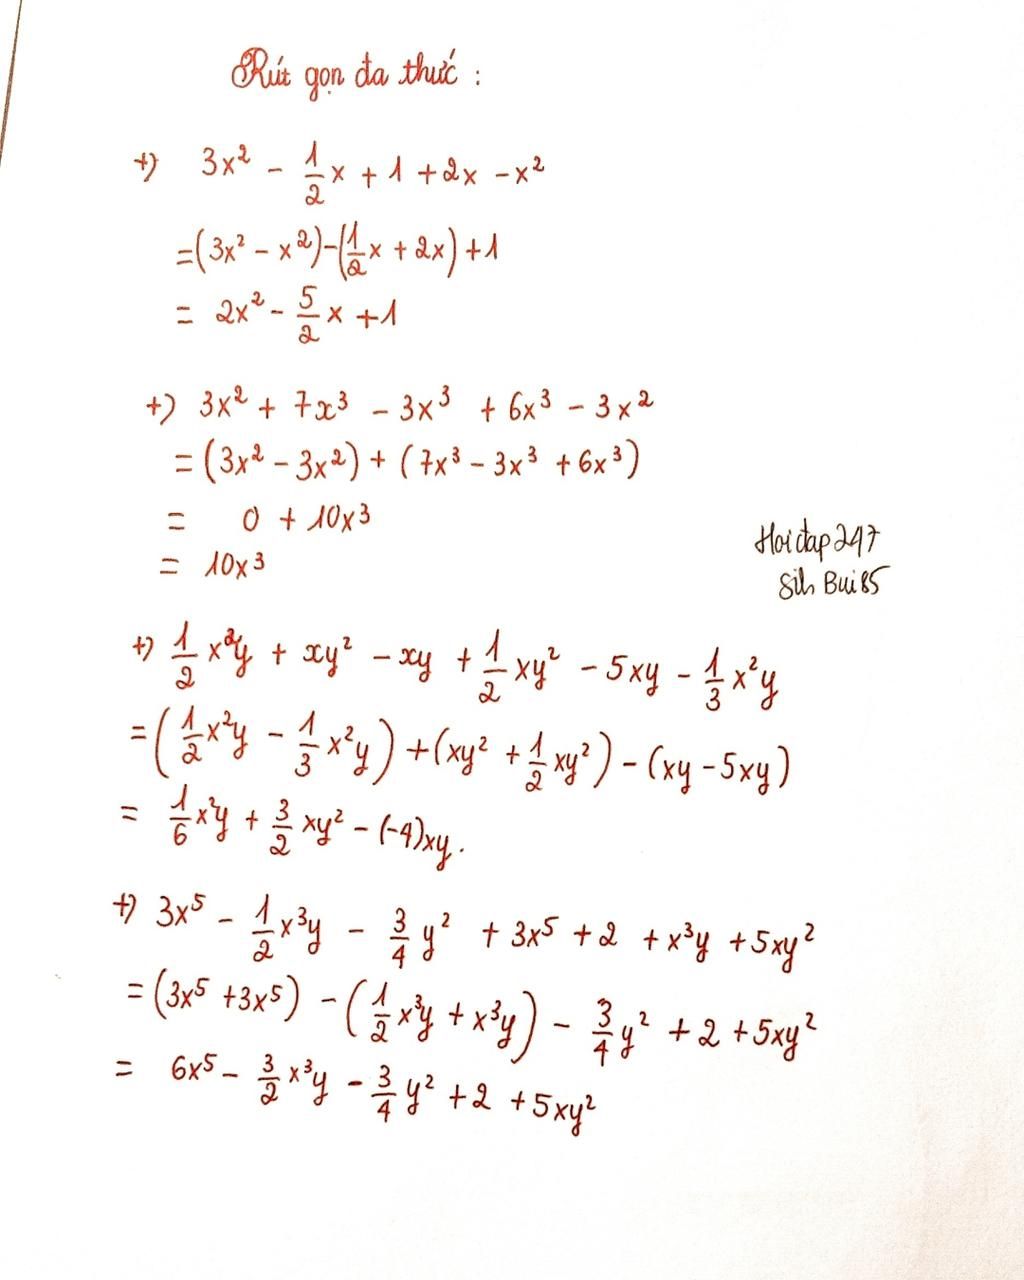 Rút gọn đa thức :
+) 3x² - 1/2 x + 1 + 2x - x²
= (3x² - x²) - (1/2 x + 2x) + 1
= 2x² - 5/2 x + 1
+) 3x² + 7x³ - 3x³ + 6x³ - 3x²
= (3x² - 3x²) + (7x³ - 3x³ + 6x³)
= 0 + 10x³
= 10x³
Hoidap247
Sih Bui85
+) 1/2 x²y + xy² - xy + 1/2 xy² - 5xy - 1/3 x²y
= (1/2 x²y - 1/3 x²y) + (xy² + 1/2 xy²) - (xy - 5xy)
= 1/6 x²y + 3/2 xy² - (-4)xy.
+) 3x⁵ - 1/2 x³y - 3/4 y² + 3x⁵ + 2 + x³y + 5xy²
= (3x⁵ + 3x⁵) - (1/2 x³y + x³y) - 3/4 y² + 2 + 5xy²
= 6x⁵ - 3/2 x³y - 3/4 y² + 2 + 5xy²